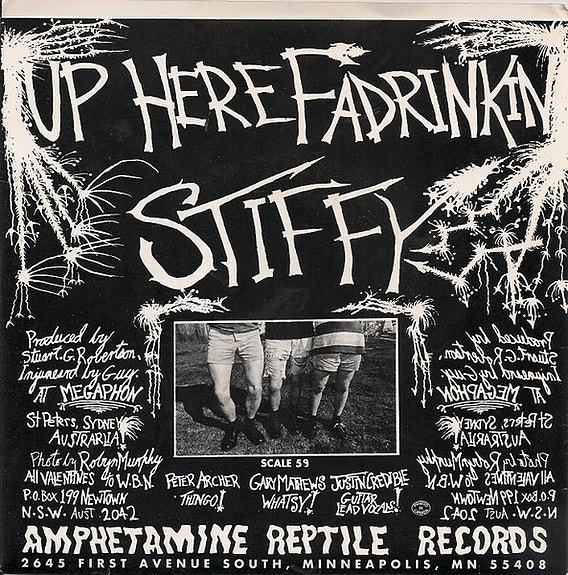 UP HERE FADRINKIN
STIFFY
Produced by
Stuart. G. Robertson.
Injuneerd by Guy.
AT MEGAPHON
St Peters, SYDNEY
AUSTRARLIA!
Photo by Robyn Murphy
All VALENTINES c/o W.B.N.
P.O. BOX 199 NEWTOWN
N.S.W. AUST 2042
SCALE 59
PETER ARCHER
THINGO!
GARY MATHEWS
WHATSY!
JUSTIN CREDIBLE
GUITAR
LEAD VOCALS!
Produced by
Stuart. G. Robertson.
Injuneerd by Guy.
AT MEGAPHON
St Peters, SYDNEY
AUSTRARLIA!
Photo by Robyn Murphy
All VALENTINES c/o W.B.N.
P.O. BOX 199 NEWTOWN
N.S.W. AUST 2042
AMPHETAMINE REPTILE RECORDS
2645 FIRST AVENUE SOUTH, MINNEAPOLIS, MN 55408